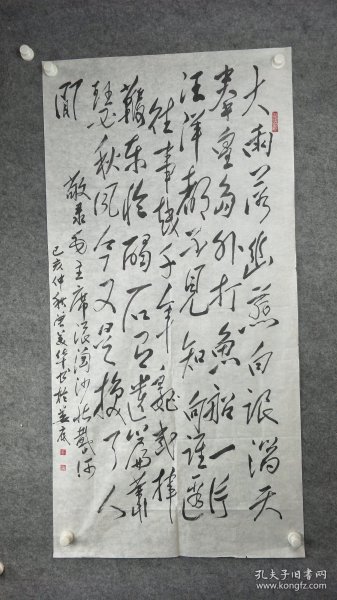 大雨落幽燕白浪滔天
秦皇島外打魚船一片
汪洋都不見知向誰邊
往事越千年魏武揮
鞭東临碣石有遺篇蕭
瑟秋風今又是換了人
間
敬录毛主席浪淘沙北戴河
己亥仲秋美华书於
孔夫子旧书网
www.kongfz.com